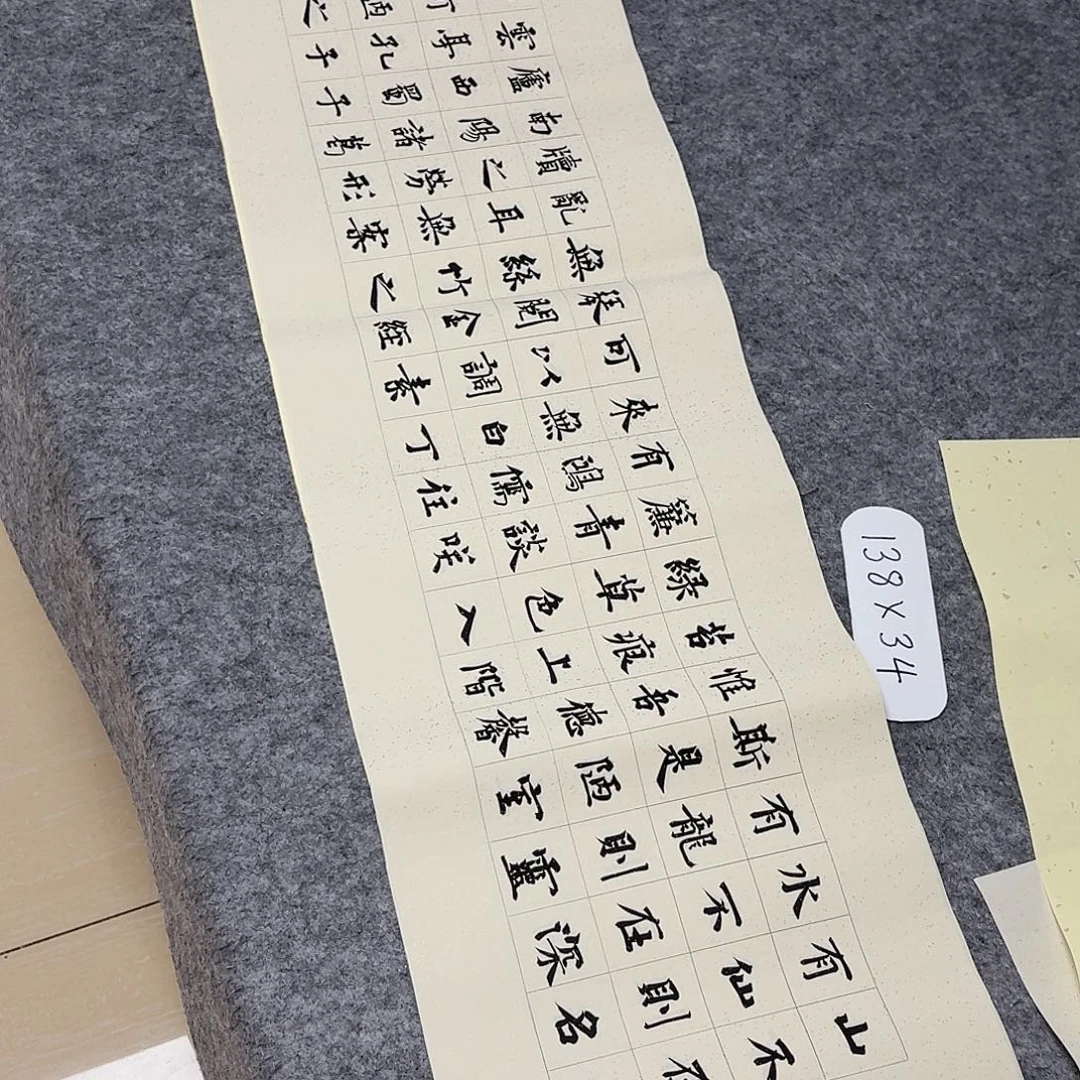 山不在
有仙則名
水不在深
有龍則靈
斯是陋室
惟吾德馨
苔痕上階
綠草色入
簾青談咲
有鴻儒往
來無白丁
可以調素
琴閱金經
無絲竹之
亂耳無案
牘之勞形
南陽諸葛
廬西蜀子
雲亭孔子
陋之
138×34